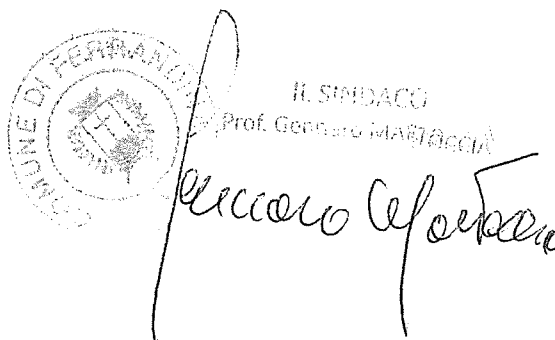 COMUNE DI FERRANDINA
IL SINDACO
Prof. Gennaro MARTOCCIA
Gennaro Martoccia